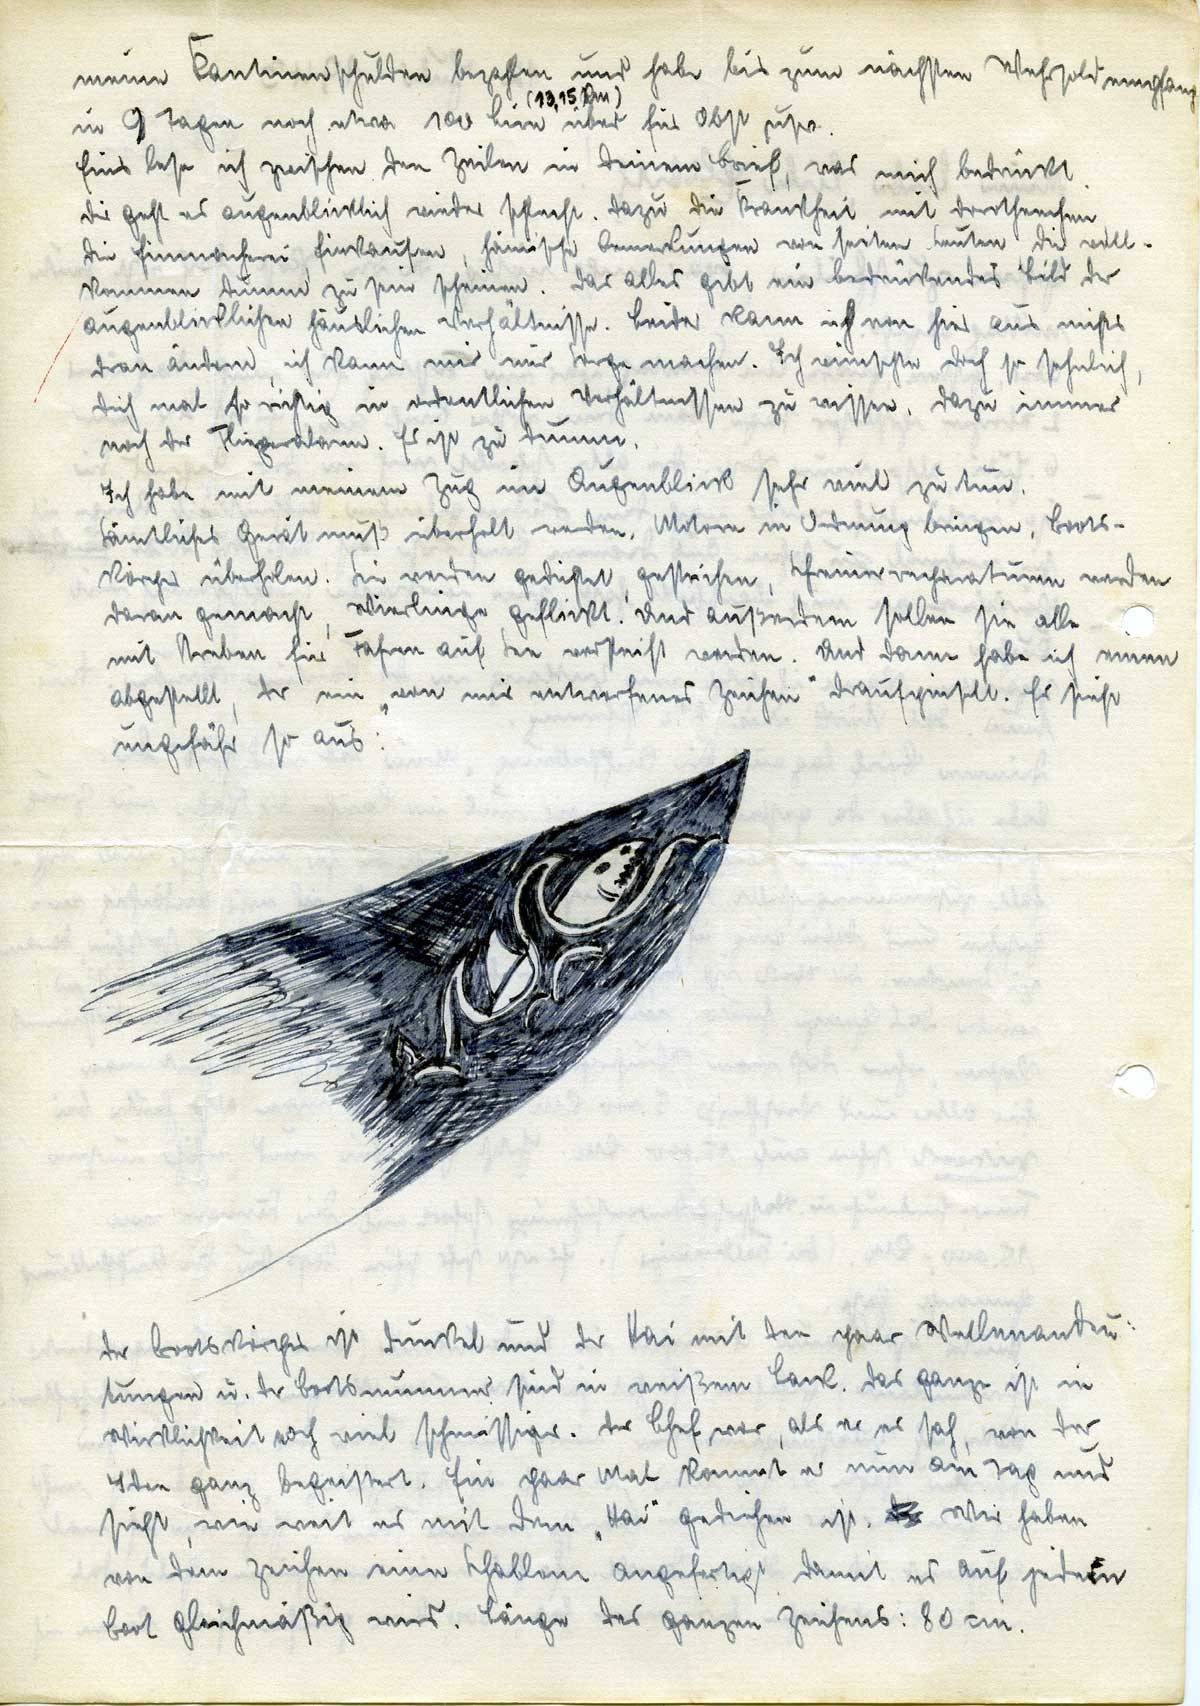 meine Kantinenschulden bezahlen und habe bis zum nächsten Wehrsoldempfang
(13,15 Rm)
in 9 Tagen noch etwa 100 Lire über für Obst usw.
Eins lese ich zwischen den Zeilen in Deinem Brief, was mich bedrückt.
Dir geht es augenblicklich wieder schlecht. Dazu die Krankheit mit Dortheechen
die Einmacherei, Einkaufen, hämische Bemerkungen von seiten Leuten die voll-
kommen dumm zu sein scheinen. Das alles gibt ein bedrückendes Bild der
augenblicklichen häuslichen Verhältnisse. Leider kann ich von hier aus nichts
dran ändern, ich kann mir nur Sorge machen. Ich wünschte doch so sehnlich,
Dich mal so richtig in ordentlichen Verhältnissen zu wissen. Dazu immer
noch der Fliegeralarm. Es ist zu dumm.
Ich habe mit meinem Zug im Augenblick sehr viel zu tun.
Sämtliches Gerät muß überholt werden, Motore in Ordnung bringen, Boots-
körper überholen. Sie werden gedichtet, gestrichen, Schreinerreparaturen werden
daran gemacht, geflickt. Und außerdem sollen sie alle
mit Streben für Fahren auf See versteift werden. Und dann habe ich einen
abgestellt, der ein „von mir entworfenes Zeichen" draufpinselt. Es sieht
ungefähr so aus:
Der Bootskörper ist dunkel und der Hai mit den paar Wellenandeu-
tungen u. der Bootsnummer sind in weißem Lack. Das ganze ist in
Wirklichkeit noch viel schmissiger. Der Chef war, als er es sah, von der
Idee ganz begeistert. Ein paar Mal kommt er nun am Tag und
sieht, wie weit es mit dem „Hai" gediehen ist. Wir haben
von dem Zeichen eine Schablone angefertigt damit es auf jedem
Boot gleichmäßig wird. Länge des ganzen Zeichens: 80 cm.